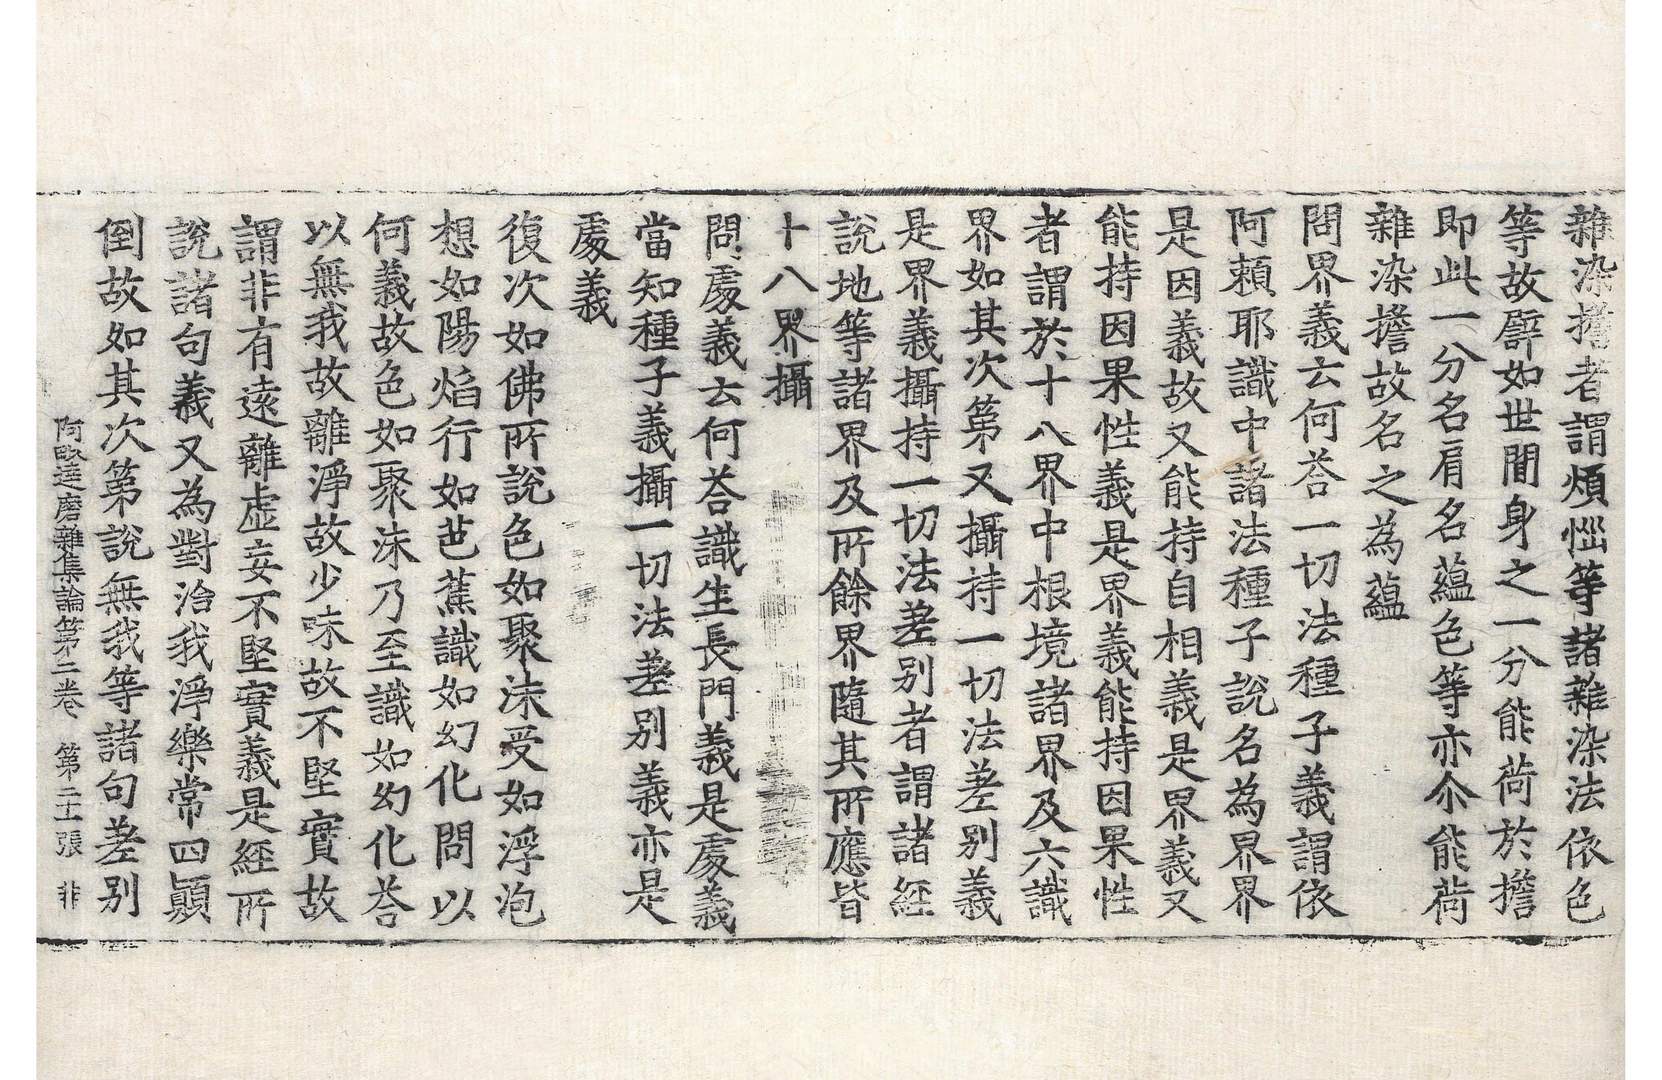 雜染擔者謂煩惱等諸雜染法依色
等故譬如世間身之一分能荷於擔
即此一分名肩名蘊色等亦尒能荷
雜染擔故名之為蘊
問界義云何荅一切法種子義謂依
阿賴耶識中諸法種子說名為界界
是因義故又能持自相義是界義又
能持因果性義是界義能持因果性
者謂於十八界中根境諸界及六識
界如其次第又攝持一切法差別義
是界義攝持一切法差別者謂諸經
說地等諸界及所餘界隨其所應皆
十八界攝
問處義云何荅識生長門義是處義
當知種子義攝一切法差別義亦是
處義
復次如佛所說色如聚沫受如浮泡
想如陽焰行如芭蕉識如幻化問以
何義故色如聚沫乃至識如幻化荅
以無我故離淨故少味故不堅實故
謂非有遠離虛妄不堅實義是經所
說諸句義又為對治我淨樂常四顚
倒故如其次第說無我等諸句差別
阿毗達磨雜集論第二卷 第二十張 非